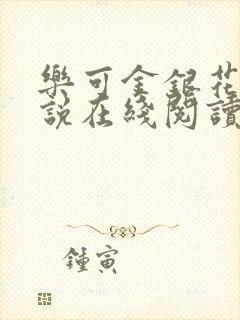 樂可金銀花
說在綫閱讀
鍾寅